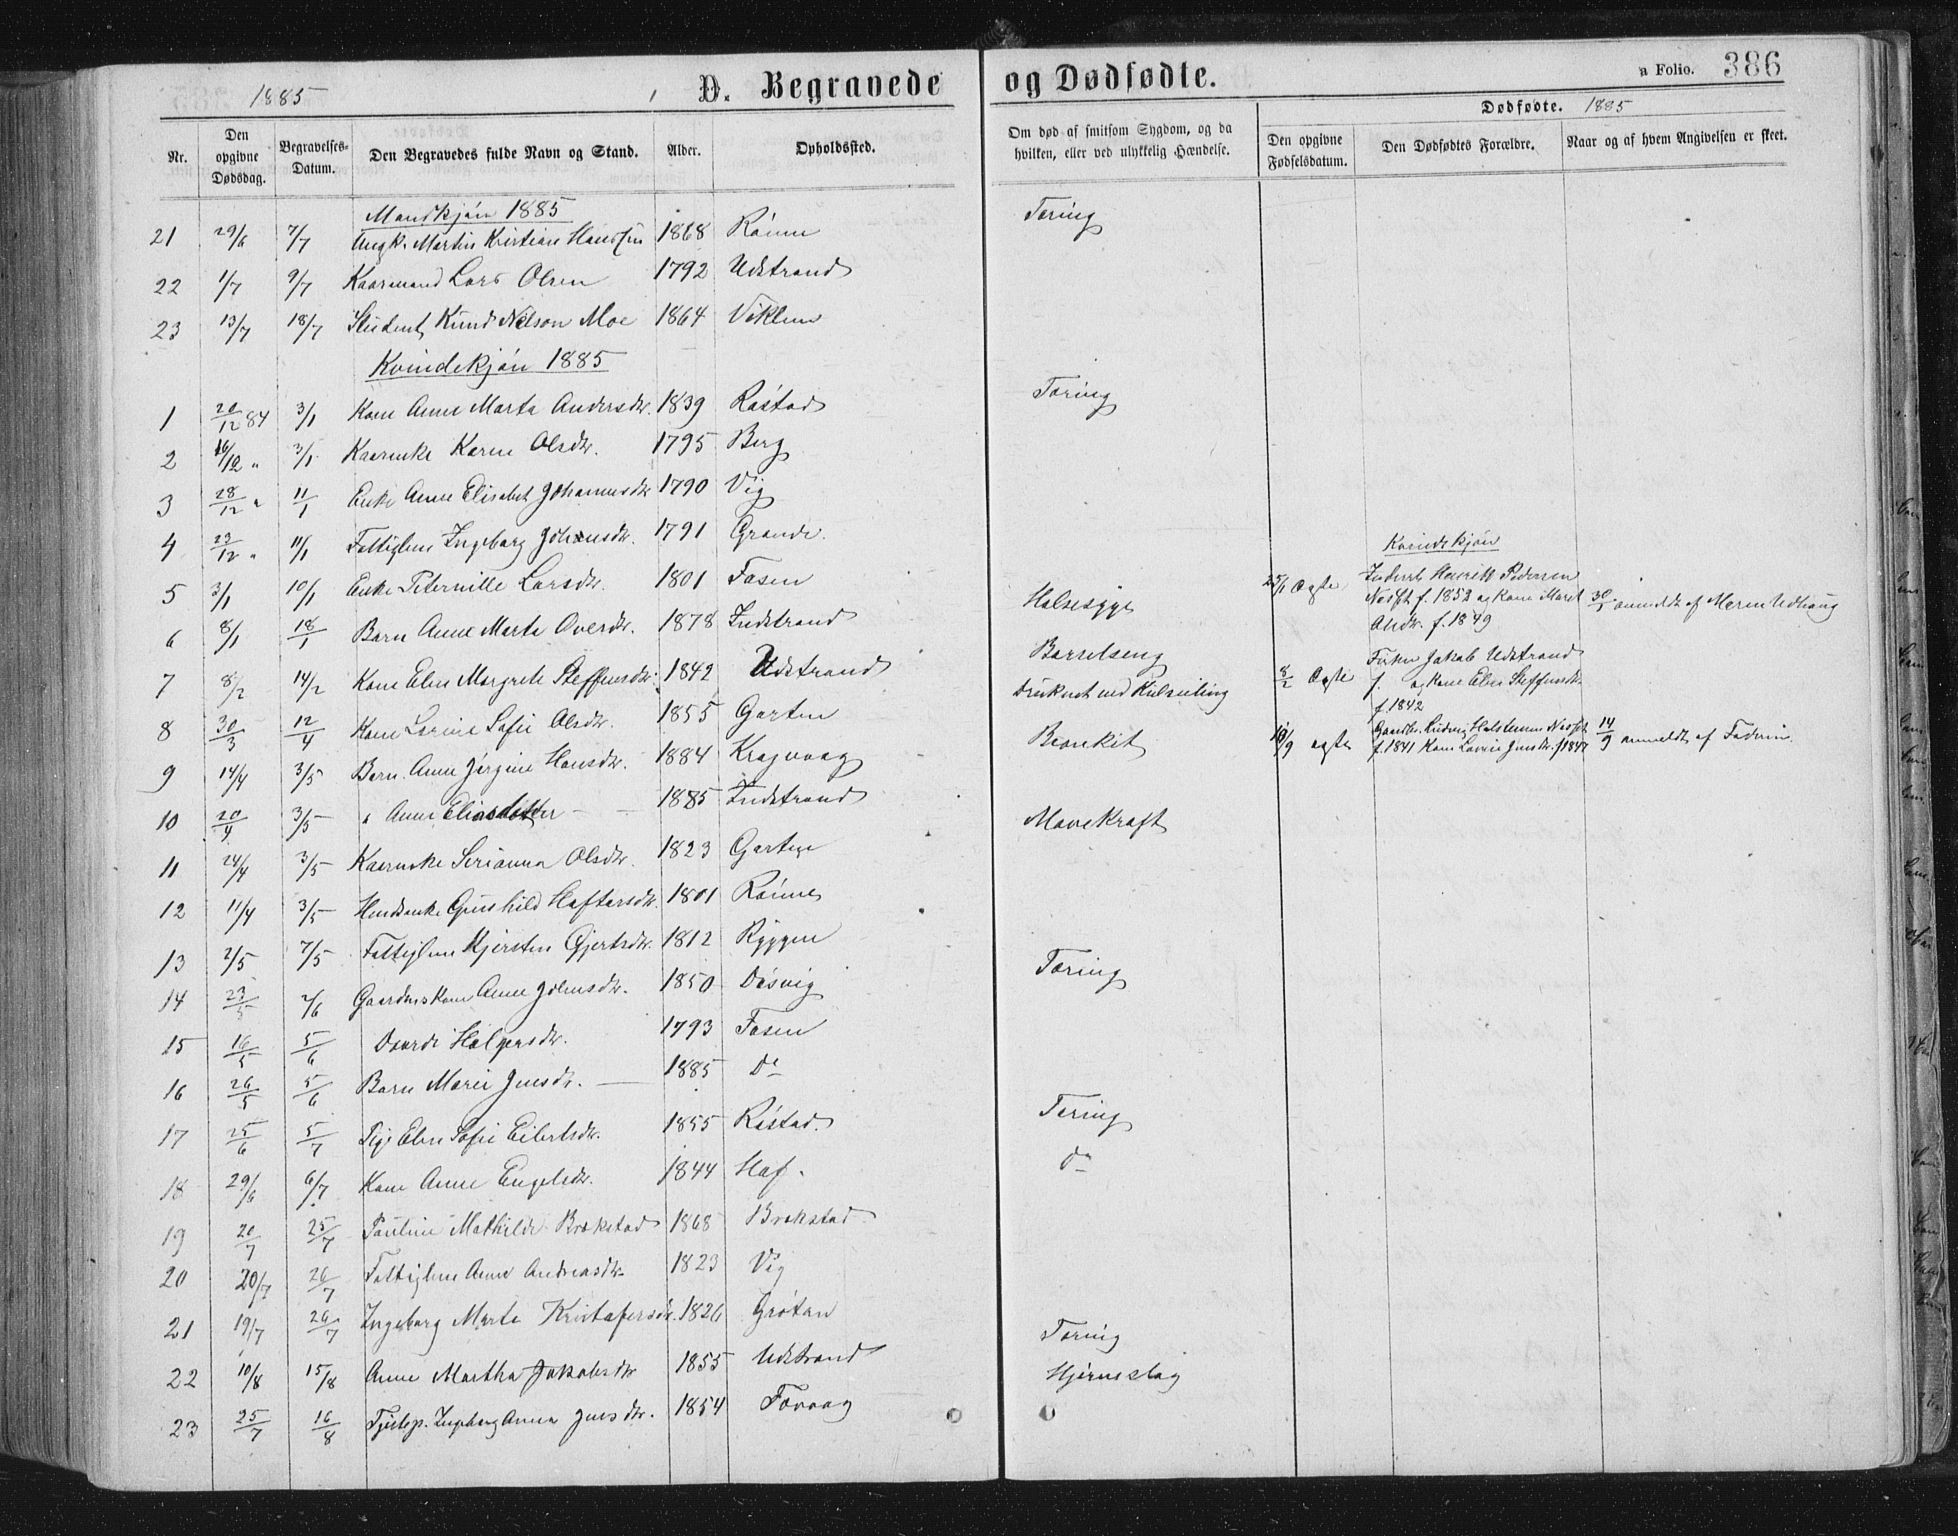 1885 D. Begravede og Dødfødte. Folio. 386
Dødfødte. 1885
Nr. Den opgivne Dødsdag. Begravelses-Datum. Den Begravedes fulde Navn og Stand. Alder. Opholdssted. Om død af smitsom Sygdom, og da hvilken, eller ved ulykkelig Hændelse. Den opgivne Fødselsdatum. Den Dødfødtes Forældre. Naar og af hvem Angivelsen er skeet.
Mandkjøn 1885
21 29/6 7/7 Ungk. Martin Kristian Hansen 1868 Rønne Tæring
22 1/7 9/7 Kaarmand Lars Olsen 1792 Udstrand
23 13/7 18/7 Student Knud Nelson Moe 1864 Viklem
Kvindekjøn 1885
1 20/12 84 3/1 Kone Anne Marta Andersdtr. 1839 Røstad Tæring
2 16/12 " 3/1 Kaarenke Karen Olsdtr. 1795 Berg
3 28/12 " 11/1 Enke Anne Elisabet Johannesdtr 1790 Vig
4 23/12 " 11/1 Fattiglem Ingeborg Johansdtr. 1791 Grande.
5 3/1 10/1 Enke Peternille Larsdtr. 1801 Fosen
6 8/1 18/1 Barn Anne Marta Oversdtr. 1878 Indstrand Halsesyge
7 8/2 14/2 Kone Elen Margrete Steffensdtr. 1842 Udstrand Barselseng
8 30/3 12/4 Kone Lorine Sofie Olsdtr. 1855 Garten Druknet ved Kulseiling
9 14/4 3/5 Barn Anne Jørgine Hansdtr. 1884 Kragvaag Bronkit
10 20/4 3/5 " Anne Eliasdatter 1885 Indstrand
11 24/4 3/5 Kaarenke Serianna Olsdtr. 1823 Garten Mavekræft
12 11/4 3/5 Gunhild Haftorsdtr. 1801 Rønne
13 2/5 7/5 Fattiglem Kjersten Gjertsdtr. 1812 Ryggen
14 23/5 2/6 Gaardms kone Anne Johnsdtr. 1850 Døsvig Tæring
15 16/5 5/6 Holgersdtr. 1793 Fosen
16 26/5 5/6 Barn Marie Jensdtr. 1885 Do
17 25/6 5/7 Pige Elen Sofie Eilertsdtr. 1855 Røstad. Tæring
18 29/6 6/7 Kone Anne Engelsdtr. 1844 Haf. Do
19 20/7 25/7 Pauline Mathilde Brækstad 1868 Brækstad
20 20/7 26/7 Fattiglem Anne Andreasdtr. 1823 Vig
21 19/7 26/7 Ingeborg Marta Kristofersdtr. 1826 Grøtan Tæring
22 10/8 15/8 Anne Martha Jakobsdtr 1855 Udstrand Hjerneslag
23 25/7 16/8 Tjstep. Ingeborg Anna Jensdtr. 1854 Tovaag
Kvindekjøn
25/1 Ægte Inderst Henrik Pedersen
f. 1852 og Kone Maret 30/1 anmeldt af Maren Udhaug
Olsdtr. f. 1849
8/2 Ægte Fisker Jakob Udstrand
f. og Kone Elen Steffensdtr.
f. 1842
10/9 ægte Gaardbr. Ludvig
f. 1841 Kone Lovise Jensdtr. f 1847 14/9 anmeldt af Faderen.